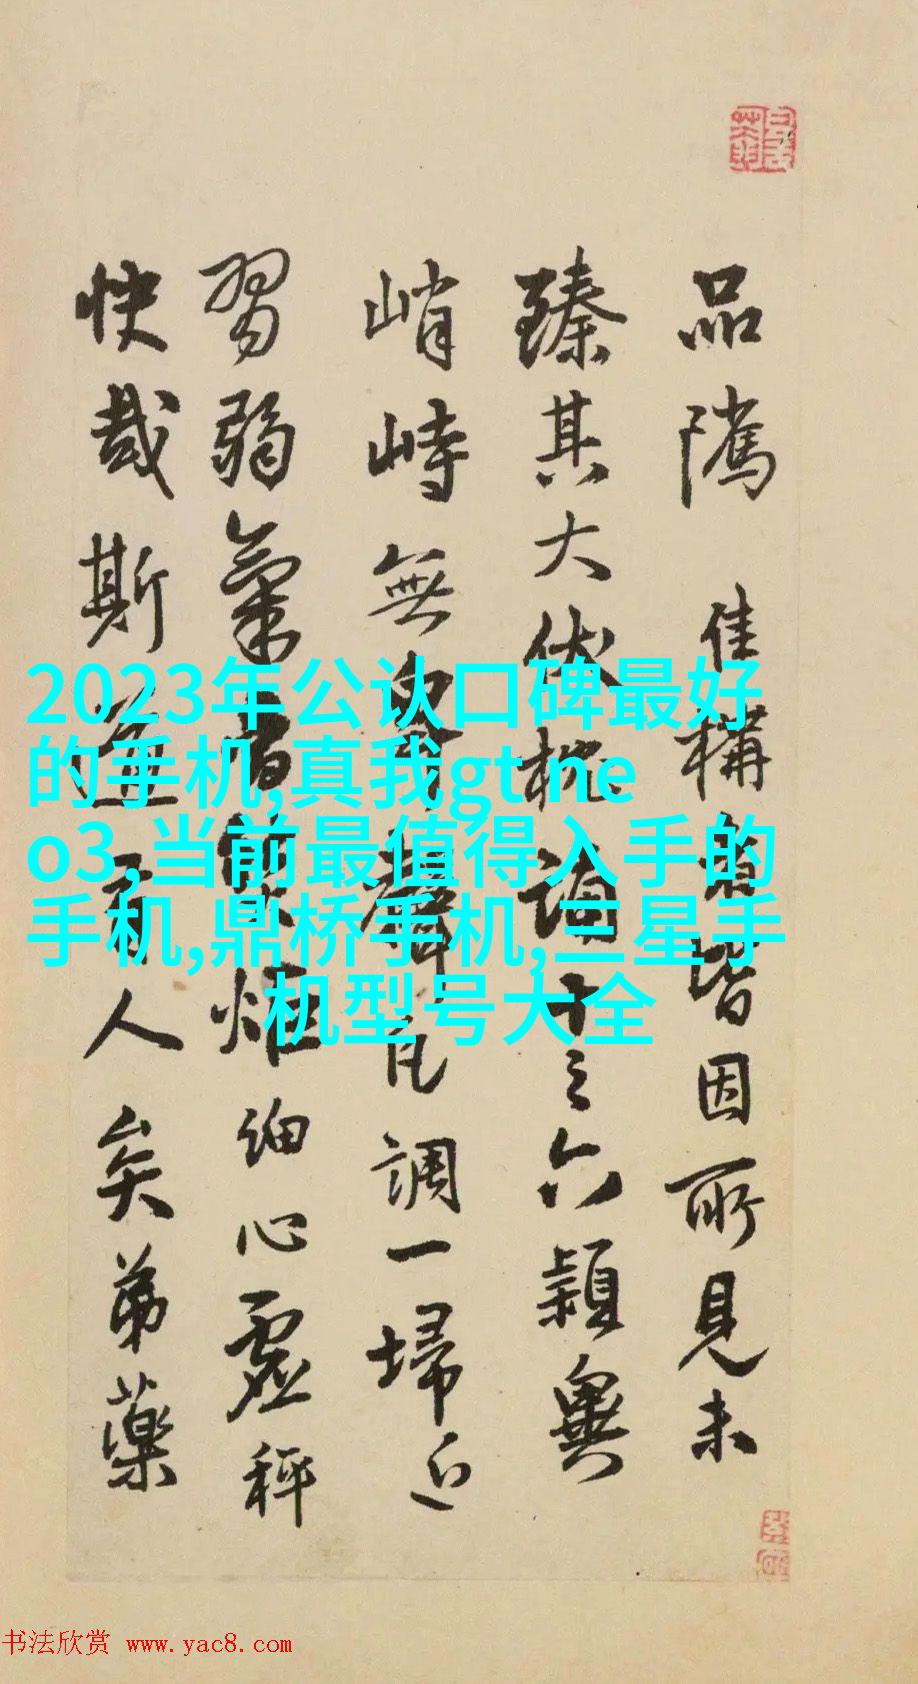 品隲佳構者皆因所見未
臻其大伏梳誨十之六穎與
峭峙無
調一埽近
習弱氣
細心虛秤
快哉斯
人矣弟藥
2023年公认口碑最好
的手机,真我gt ne
o3,当前最值得入手的
手机,鼎桥手机,三星手
机型号大全
书法欣赏 www.yac8.com